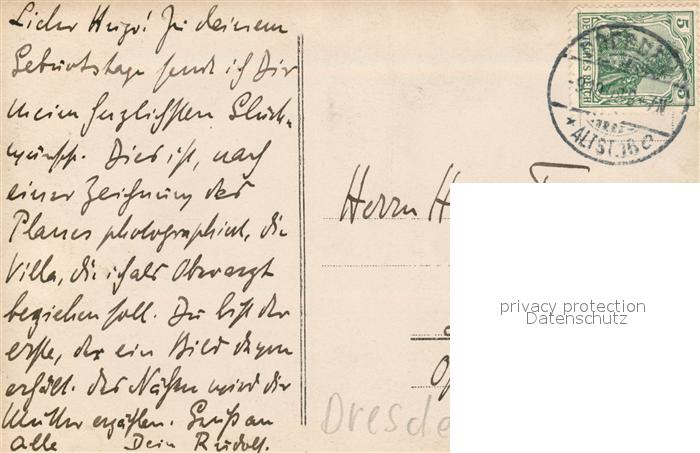 Lieber Hugo! Zu deinem
Geburtstage sende ich Dir
meine herzlichsten Glück-
wünsche. Dies ist, nach
einer Zeichnung des
Planes photographiert, die
Villa, die ich als Oberarzt
beziehen soll. Du bist der
erste, der ein Bild davon
erhält. Das Nähere wird dir
Mutter erzählen. Gruß an
alle Dein Rudolf.
Herrn H
Dresde
5
DEUTSCHES REICH
DRESDEN
* ALTST. 16 c
privacy protection
Datenschutz